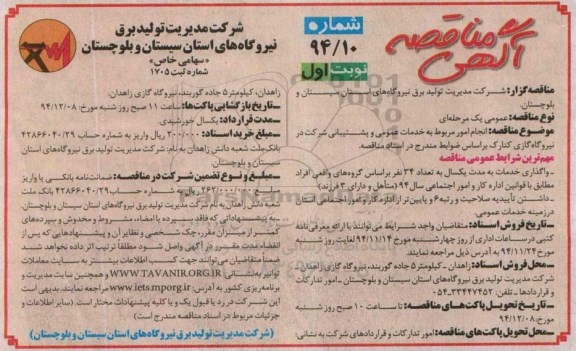 آگهی مناقصه
شماره
۹۴/۱۰
نوبت اول
شرکت مدیریت تولید برق
نیروگاه‌های استان سیستان و بلوچستان
«سهامی خاص»
شماره ثبت ۱۷۰۵
مناقصه گزار: شرکت مدیریت تولید برق نیروگاه‌های استان سیستان و
بلوچستان.
نوع مناقصه: عمومی یک مرحله‌ای
موضوع مناقصه: انجام امور مربوط به خدمات عمومی و پشتیبانی شرکت در
نیروگاه گازی کنارک براساس ضوابط مندرج در اسناد مناقصه.
مهم‌ترین شرایط عمومی مناقصه
ـ واگذاری خدمات به مدت یکسال به تعداد ۳۴ نفر براساس گروه‌های واقعی افراد
مطابق با قوانین اداره کار و امور اجتماعی سال ۹۴ (متأهل و دارای ۲ فرزند)
ـ داشتن تأییدیه صلاحیت و رتبه ۶ و پایین‌تر از اداره کار و امور اجتماعی
درزمینه خدمات عمومی
ـ تاریخ فروش اسناد: متقاضیان واجد شرایط می‌توانند با ارائه معرفی‌نامه
کتبی درساعات اداری از روز چهارشنبه مورخ ۹۴/۱۱/۱۴ لغایت روز شنبه
مورخ ۹۴/۱۱/۲۴ به آدرس ذیل مراجعه نمایند.
ـ محل فروش اسناد: زاهدان ـ کیلومتر ۵ جاده گوربند، نیروگاه گازی زاهدان ـ
شرکت مدیریت تولید برق نیروگاه‌های استان سیستان و بلوچستان ـ امور تدارکات
و قراردادها ـ تلفن: ۳۳۴۴۷۴۵۲ـ۰۵۴
ـ تاریخ تحویل پاکت‌های مناقصه: تا ساعت ۱۰ صبح روز شنبه
مورخ: ۹۴/۱۲/۰۸
ـ محل تحویل پاکت‌های مناقصه: امور تدارکات و قراردادهای شرکت به نشانی:
زاهدان، کیلومتر ۵ جاده گوربند، نیروگاه گازی زاهدان.
ـ تاریخ بازگشایی پاکت‌ها: ساعت ۱۱ صبح روز شنبه مورخ: ۹۴/۱۲/۰۸
ـ مدت قرارداد: یکسال خورشیدی.
ـ مبلغ خرید اسناد: ۲۰۰/۰۰۰ ریال واریز به شماره حساب ۴۲۸۶۶۰۴۰/۲۹
بانک ملت شعبه دانش زاهدان به نام: شرکت مدیریت تولید برق نیروگاه‌های استان
سیستان و بلوچستان.
ـ مبلغ و نوع تضمین شرکت در مناقصه: ضمانت‌نامه بانکی یا واریز
مبلغ ۲۶۲/۰۰۰/۰۰۰ ریال به شماره حساب ۴۲۸۶۶۰۴۰/۲۹ بانک ملت
شعبه دانش زاهدان به نام شرکت مدیریت تولید برق نیروگاه‌های استان سیستان و بلوچستان.
ـ به پیشنهاداتی که فاقد سپرده یا امضاء، مشروط و مخدوش و سپرده‌های
کمتر از میزان مقرر، چک شخصی و نظایر آن و پیشنهادهایی که پس از
انقضاء مدت مقرر در آگهی واصل شود مطلقاً ترتیب اثر داده نخواهد شد.
ضمناً متقاضیان می‌توانند جهت کسب اطلاعات بیشتر به سایت معاملات
توانیر به نشانی: WWW.TAVANIR.ORG.IR و همچنین سایت مدیریت و
برنامه‌ریزی کشور به آدرس: www.iets.mporg.ir مراجعه نمایند. بدیهی است
این شرکت در رد یا قبول یک و یا کلیه پیشنهادات مختار است. (سایر اطلاعات و
جزئیات مربوط در اسناد مناقصه مندرج است)
(شرکت مدیریت تولید برق نیروگاه‌های استان سیستان و بلوچستان)